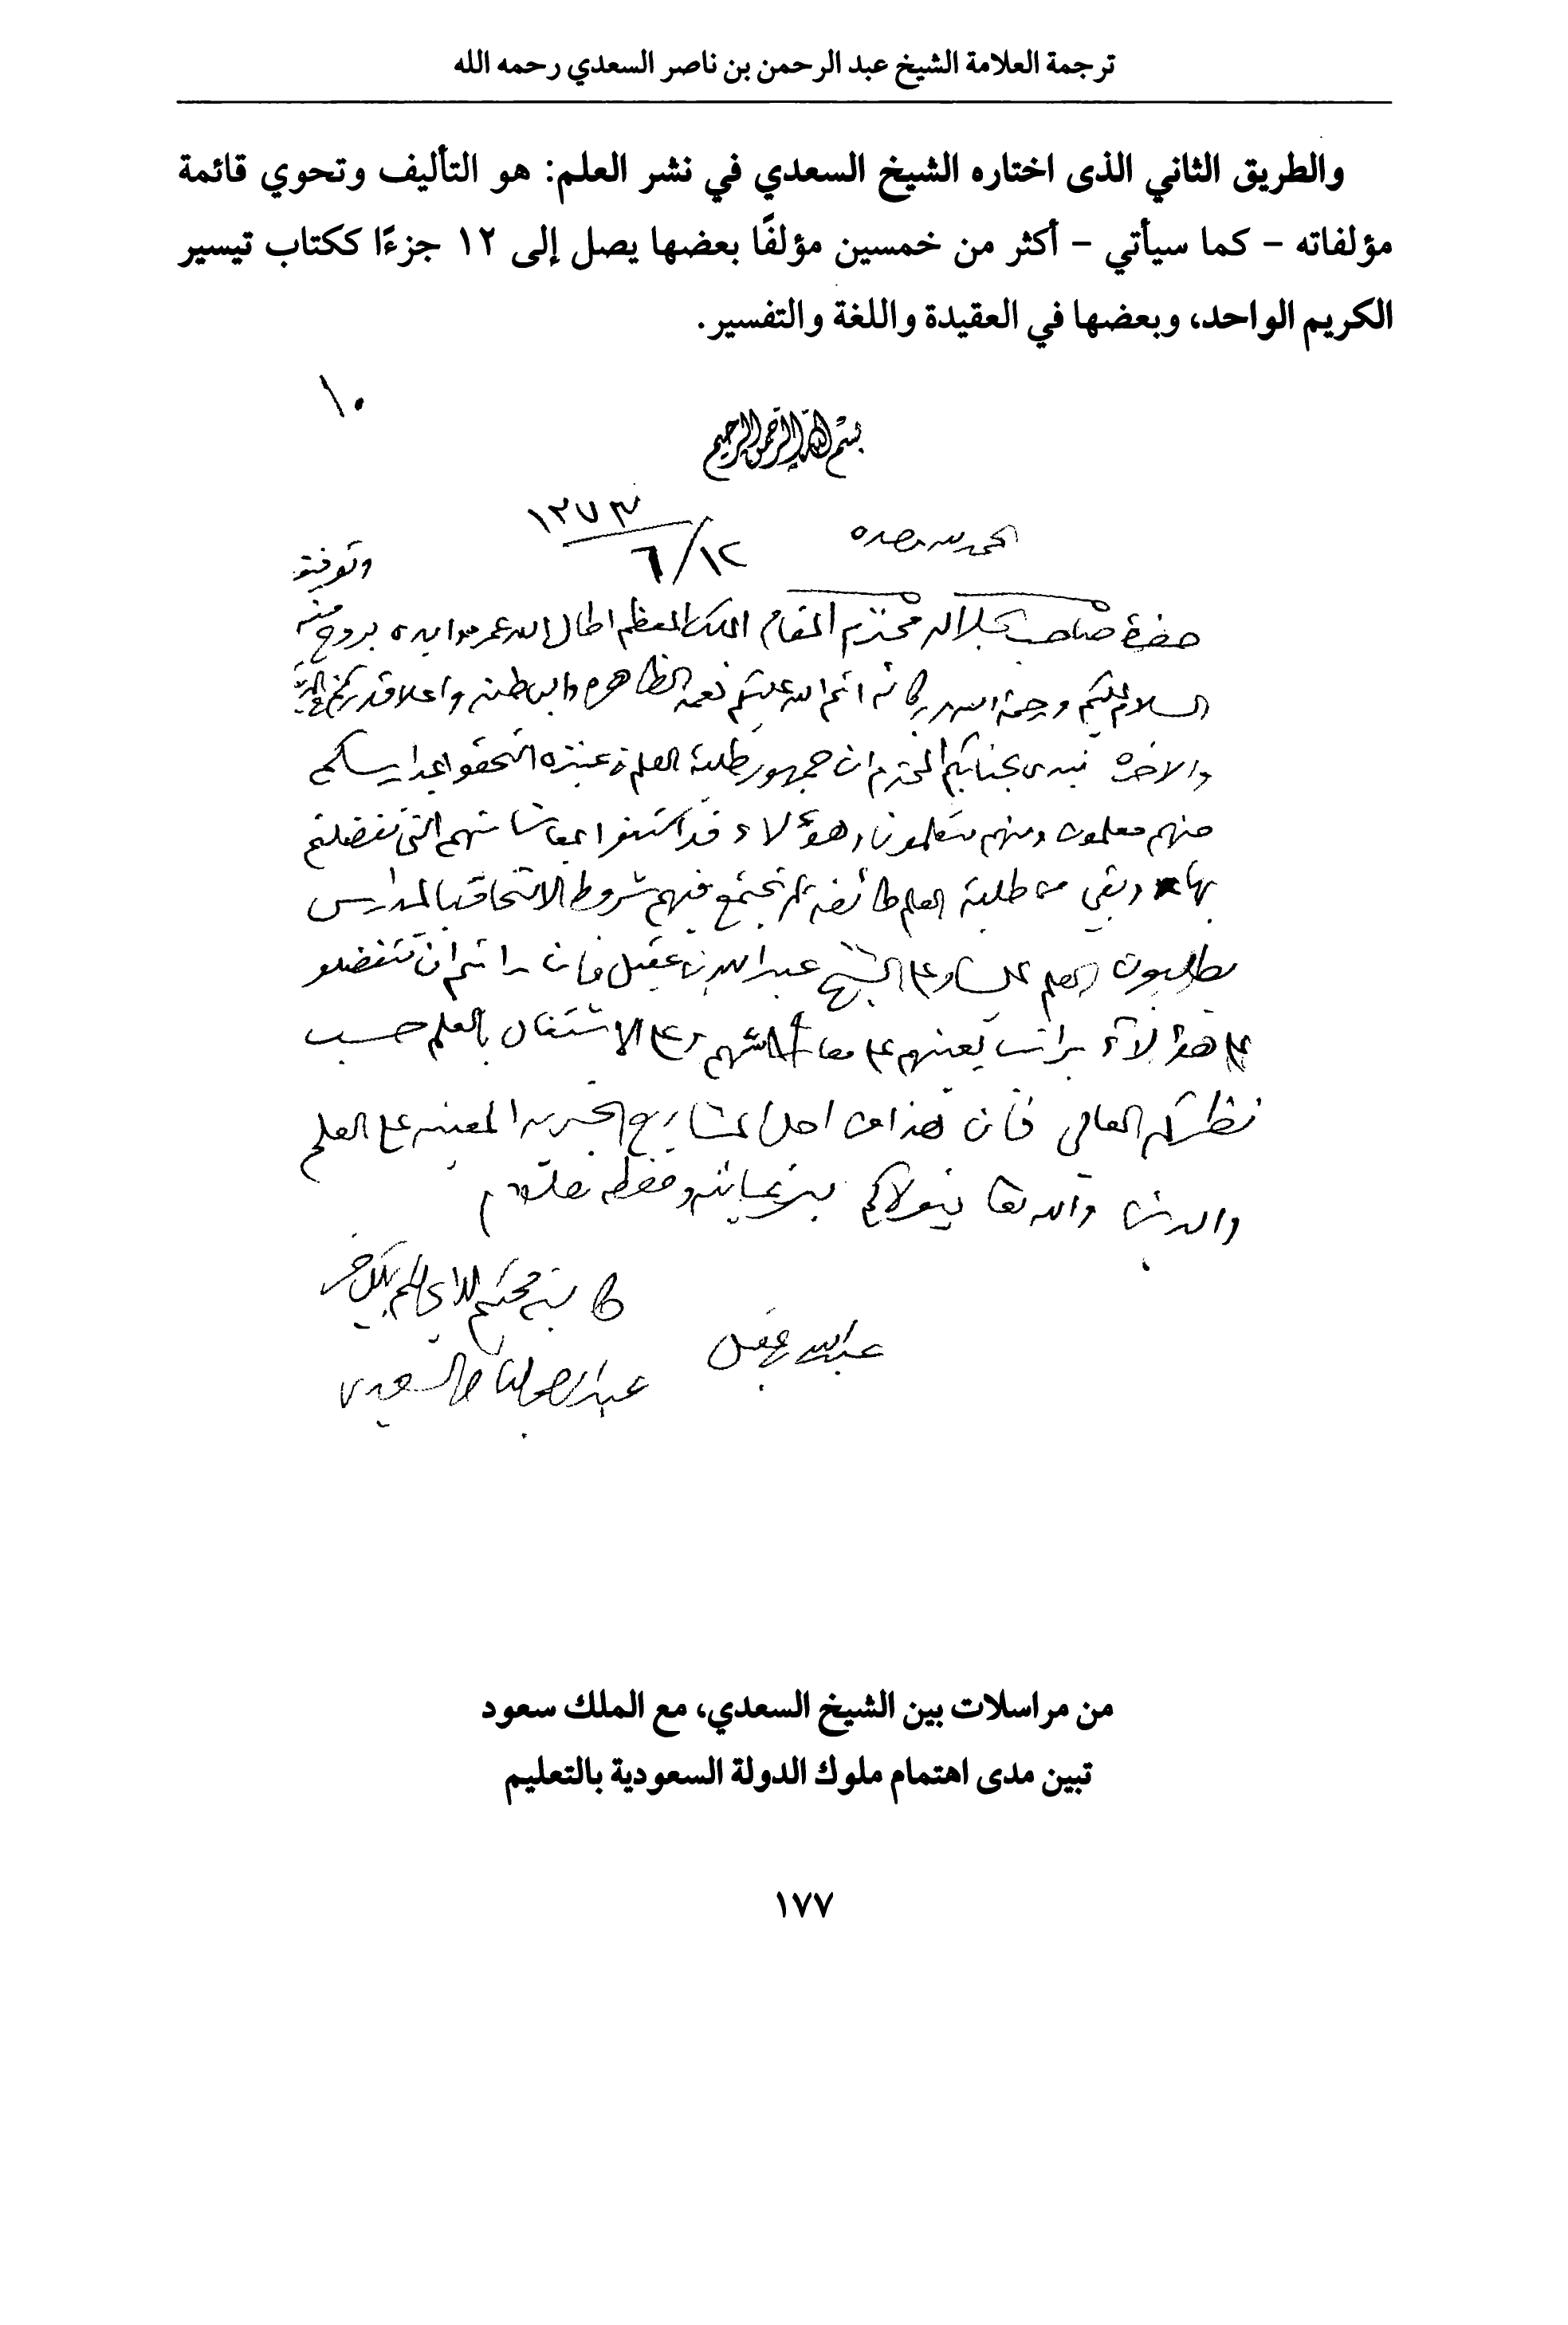 ترجمة العلامة الشيخ عبد الرحمن بن ناصر السعدي رحمه الله
والطريق الثاني الذى اختاره الشيخ السعدي في نشر العلم: هو التأليف وتحوي قائمة
مؤلفاته – كما سيأتي – أكثر من خمسين مؤلفًا بعضها يصل إلى ١٢ جزءًا ككتاب تيسير
الكريم الواحد، وبعضها في العقيدة واللغة والتفسير.
١٠
بسم الله الرحمن الرحيم
١٣٧٣
الحمد لله وحده ٦/١٢
حضرة صاحب الجلالة محترم المقام الملك المعظم اطال الله عمره وايده بروح منه وتوفيقه
السلام عليكم ورحمة الله وبركاته اتم الله عليكم نعمه الظاهره والباطنه واعلا قدركم في الدنيا
والاخره نبدي لجنابكم المحترم ان جمهور طلبة العلم في عنيزه التحقوا بمدارسكم
منهم معلمون ومنهم متعلمون وهؤلاء قد اكتفوا بمعاشاتهم التي تفضلتم
بها وبقي من طلبة العلم طائفة لم تجتمع فيهم شروط الالتحاق بالمدارس
يطلبون العلم علينا وعلى الشيخ عبد الله بن عقيل فان رايتم ان تتفضلو
على هؤلاء براتب يعينهم على معاشهم وعلى الاشتغال بالعلم حسب
نظركم العالي فان هذا من اجل المشاريع الخيريه المعينه على العلم
والدين والله تعالى يتولاكم بعنايته وحفظه
محبكم الداعي لكم بكل خير
عبد الله بن عقيل
عبد الرحمن الناصر السعدي
من مراسلات بين الشيخ السعدي، مع الملك سعود
تبين مدى اهتمام ملوك الدولة السعودية بالتعليم
١٧٧